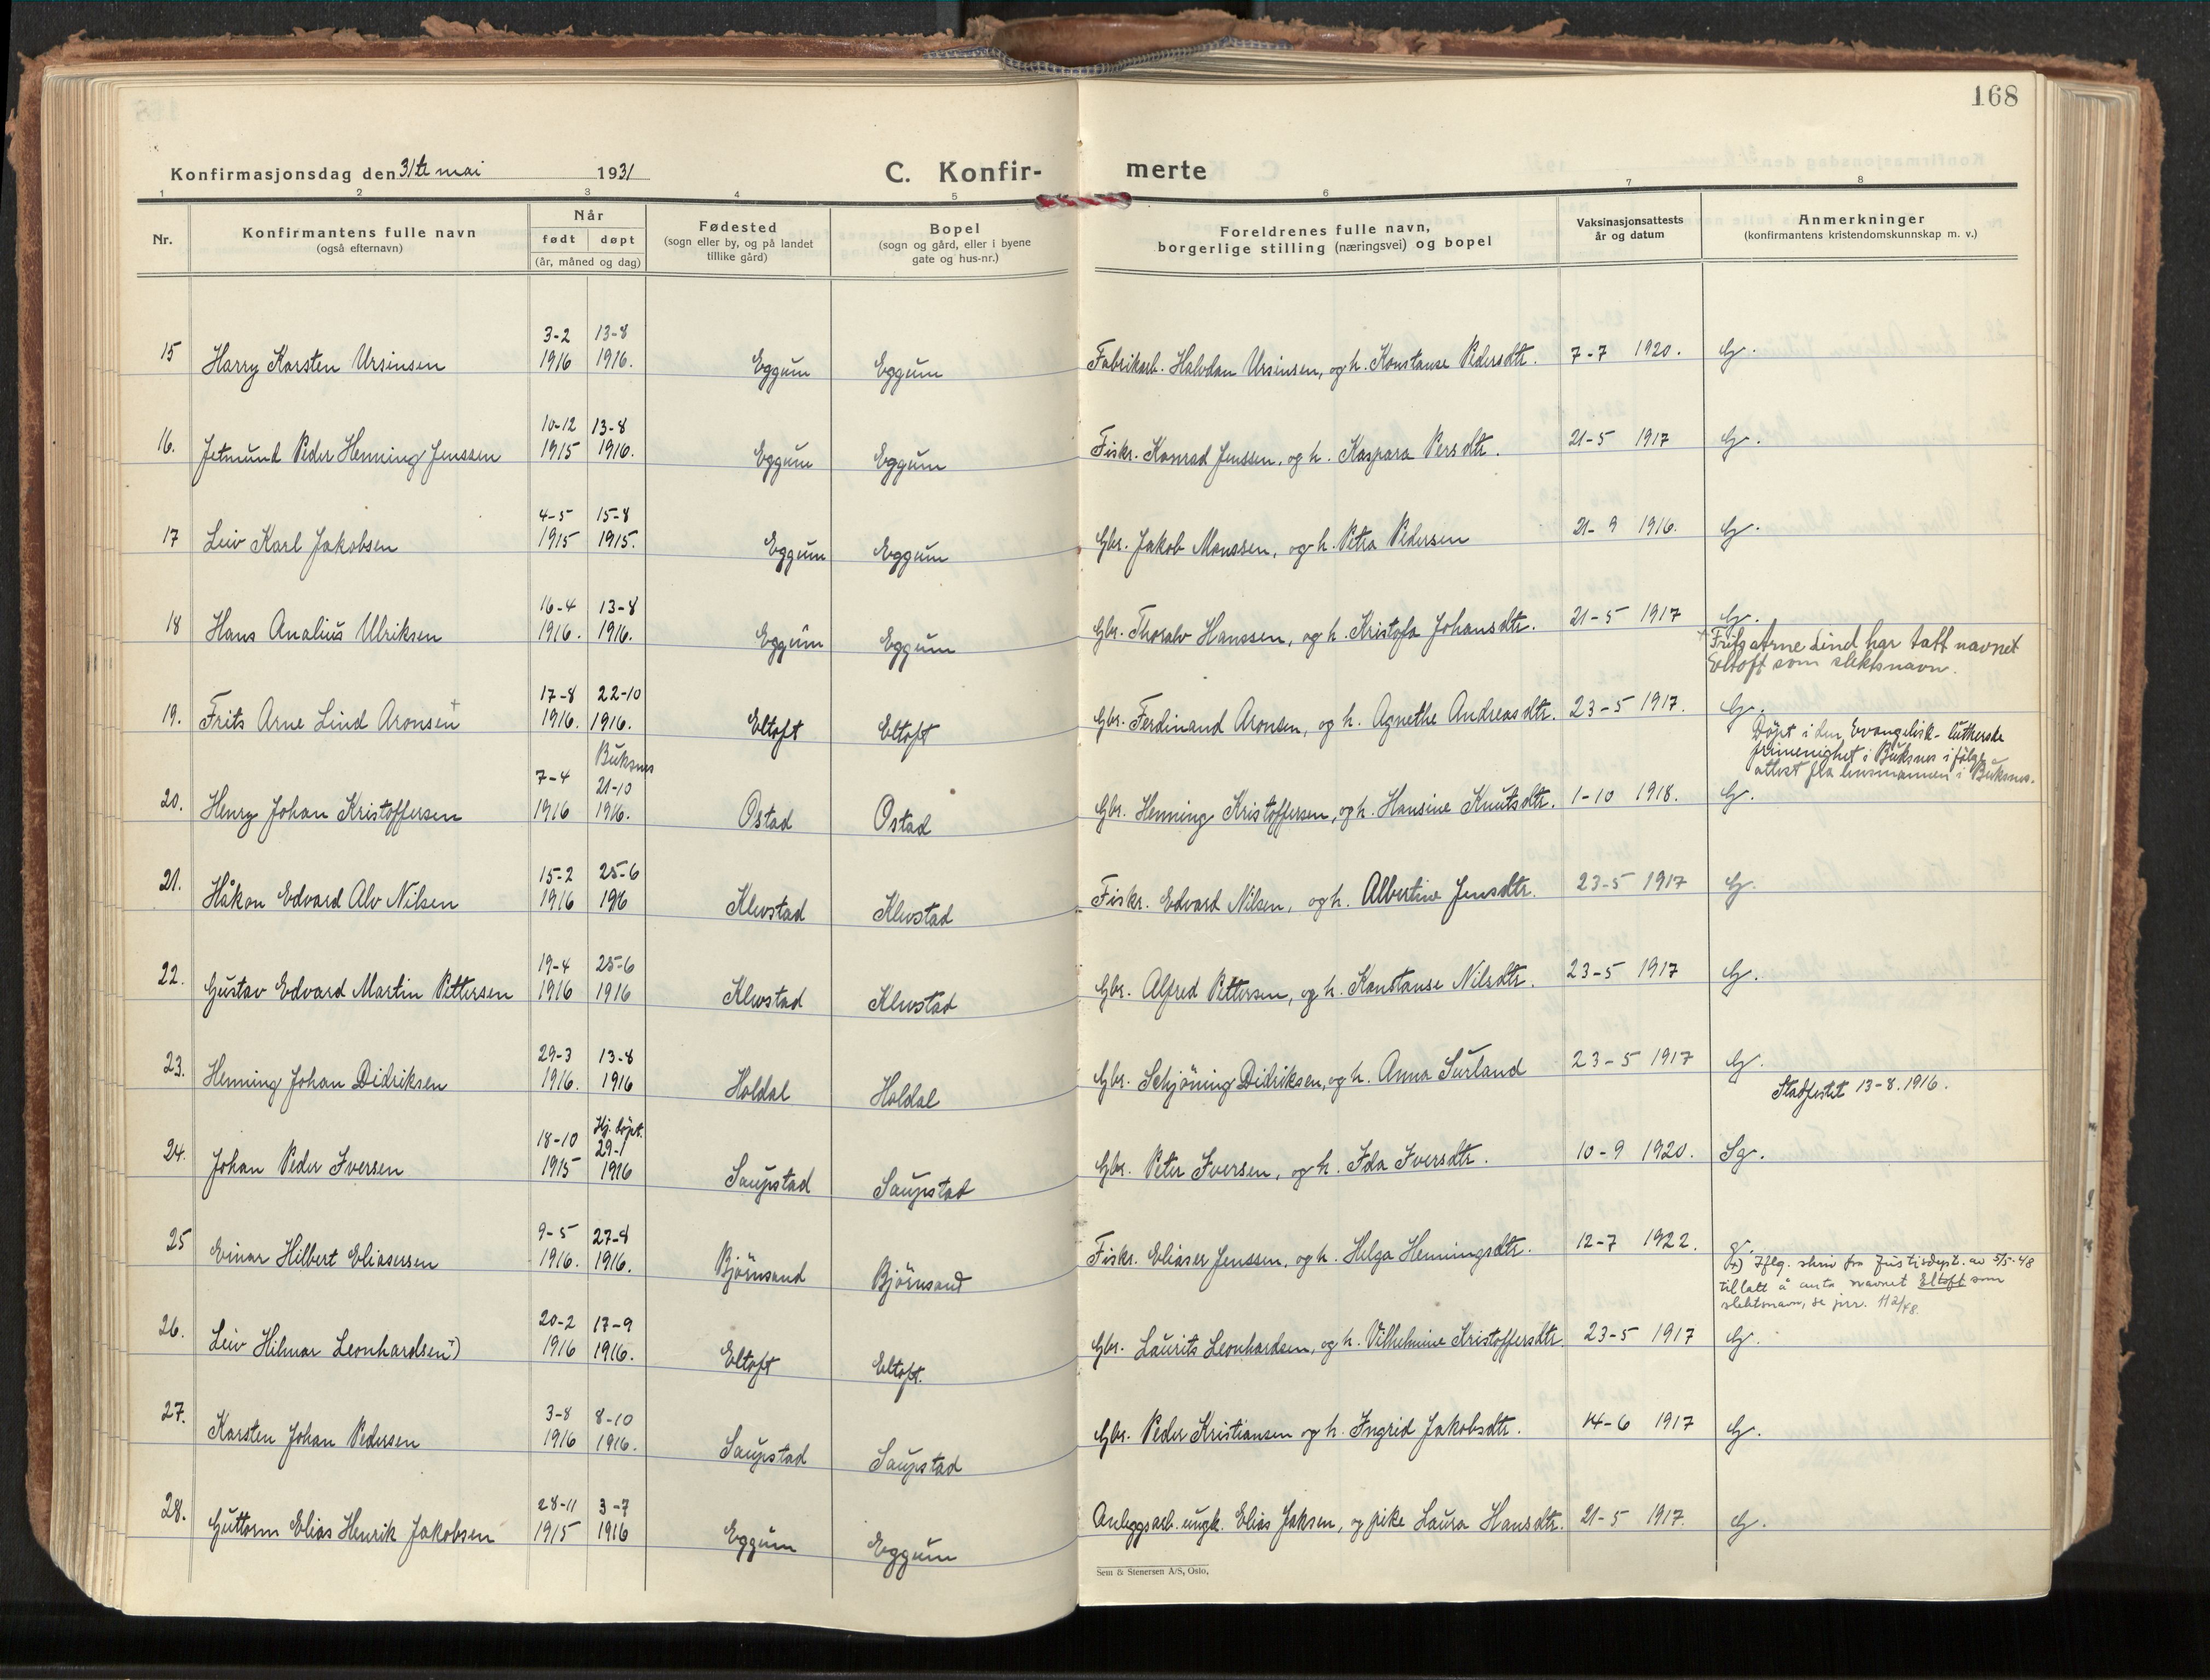 168
Konfirmasjonsdag den 31te mai 1931
C. Konfir- merte
1 2 3 4 5 6 7 8
Nr.
Konfirmantens fulle navn
(også efternavn)
Når
født døpt
(år, måned og dag)
Fødested
(sogn eller by, og på landet
tillike gård)
Bopel
(sogn og gård, eller i byene
gate og hus-nr.)
Foreldrenes fulle navn,
borgerlige stilling (næringsvei) og bopel
Vaksinasjonsattests
år og datum
Anmerkninger
(konfirmantens kristendomskunnskap m. v.)
3-2 13-8
15 Harry Karsten Ursinsen 1916 1916. Eggum Eggum Fabrikarb. Halvdan Ursinsen, og h. Konstanse Pedersdtr. 7-7 1920. G.
10-12 13-8
16. Jetmund Peder Henning Jenssen 1915 1916. Eggum Eggum Fiskr. Konrad Jenssen, og h. Kaspara Persdtr. 21-5 1917 G.
4-5 15-8
17 Leiv Karl Jakobsen 1915 1915. Eggum Eggum Gbr. Jakob Monssen, og h. Petra Pedersen 21-9 1916. G.
16-4 13-8
18 Hans Analius Ulriksen 1916. 1916. Eggum Eggum Gbr. Thoralv Hanssen, og h. Kristofa Johansdtr. 21-5 1917 G.
+ Frits Arne Lind har tatt navnet
Eltoft som slektsnavn.
17-8 22-10
19. Frits Arne Lind Aronsen + 1916. 1916. Eltoft Eltoft Gbr. Ferdinand Aronsen, og h. Agnethe Andreasdtr. 23-5 1917. G.
Døpt i den Evangelisk-lutherske
frimenighet i Buksnes ifølge
attest fra lensmannen i Buksnes.
Buksnes
7-4 21-10
20. Henry Johan Kristoffersen 1916 1916. Ostad Ostad Gbr. Henning Kristoffersen, og h. Hansine Knutsdtr. 1-10 1918. G.
15-2 25-6
21. Håkon Edvard Alv Nilsen 1916 196 Klevstad Klevstad Fiskr. Edvard Nilsen, og h. Albertine Jensdtr. 23-5 1917 G.
19-4 25-6
22. Gustav Edvard Martin Pettersen 1916 1916 Klevstad Klevstad Gbr. Alfred Pettersen, og h. Konstanse Nilsdtr. 23-5 1917 G.
29-3 13-8
23. Henning Johan Didriksen 1916. 1916 Holdal Holdal Gbr. Schjöning Didriksen, og h. Anna Surland 23-5 1917 G.
Stadfestet 13-8.1916.
Hj. døpt.
18-10 29-1
24. Johan Peder Iversen 1915 1916 Saupstad Saupstad Gbr. Peter Iversen, og h. Ida Iversdtr. 10-9 1920. Sg.
9-5 27-8
25 Einar Hilbert Eliasersen 1916. 1916. Björnsand Björnsand Fiskr. Eliaser Jenssen, og h. Helga Henningsdtr. 12-7 1922. g.
+) Iflg. skriv fra Justisdept. av 5/5-48
tillatt å anta navnet Eltoft som
slektsnavn, se jnr. 112/48.
20-2 17-9
26. Leiv Hilmar Leonhardsen +) 1916 1916. Eltoft Eltoft. Gbr. Laurits Leonhardsen, og h. Vilhelmine Kristoffersdtr. 23-5 1917 G.
3-8 8-10
27. Karsten Johan Pedersen 1916 1916. Saupstad Saupstad Gbr. Peder Kristiansen og h. Ingrid Jakobsdtr. 14-6 1917 G.
28-11 3-7
28. Guttorm Elias Henrik Jakobsen 1915 1916 Eggum Eggum Anleggsarb. ungk. Elias Jaksen, og pike Laura Hansdtr. 21-5 1917. G.
Sem & Stenersen A/S, Oslo.